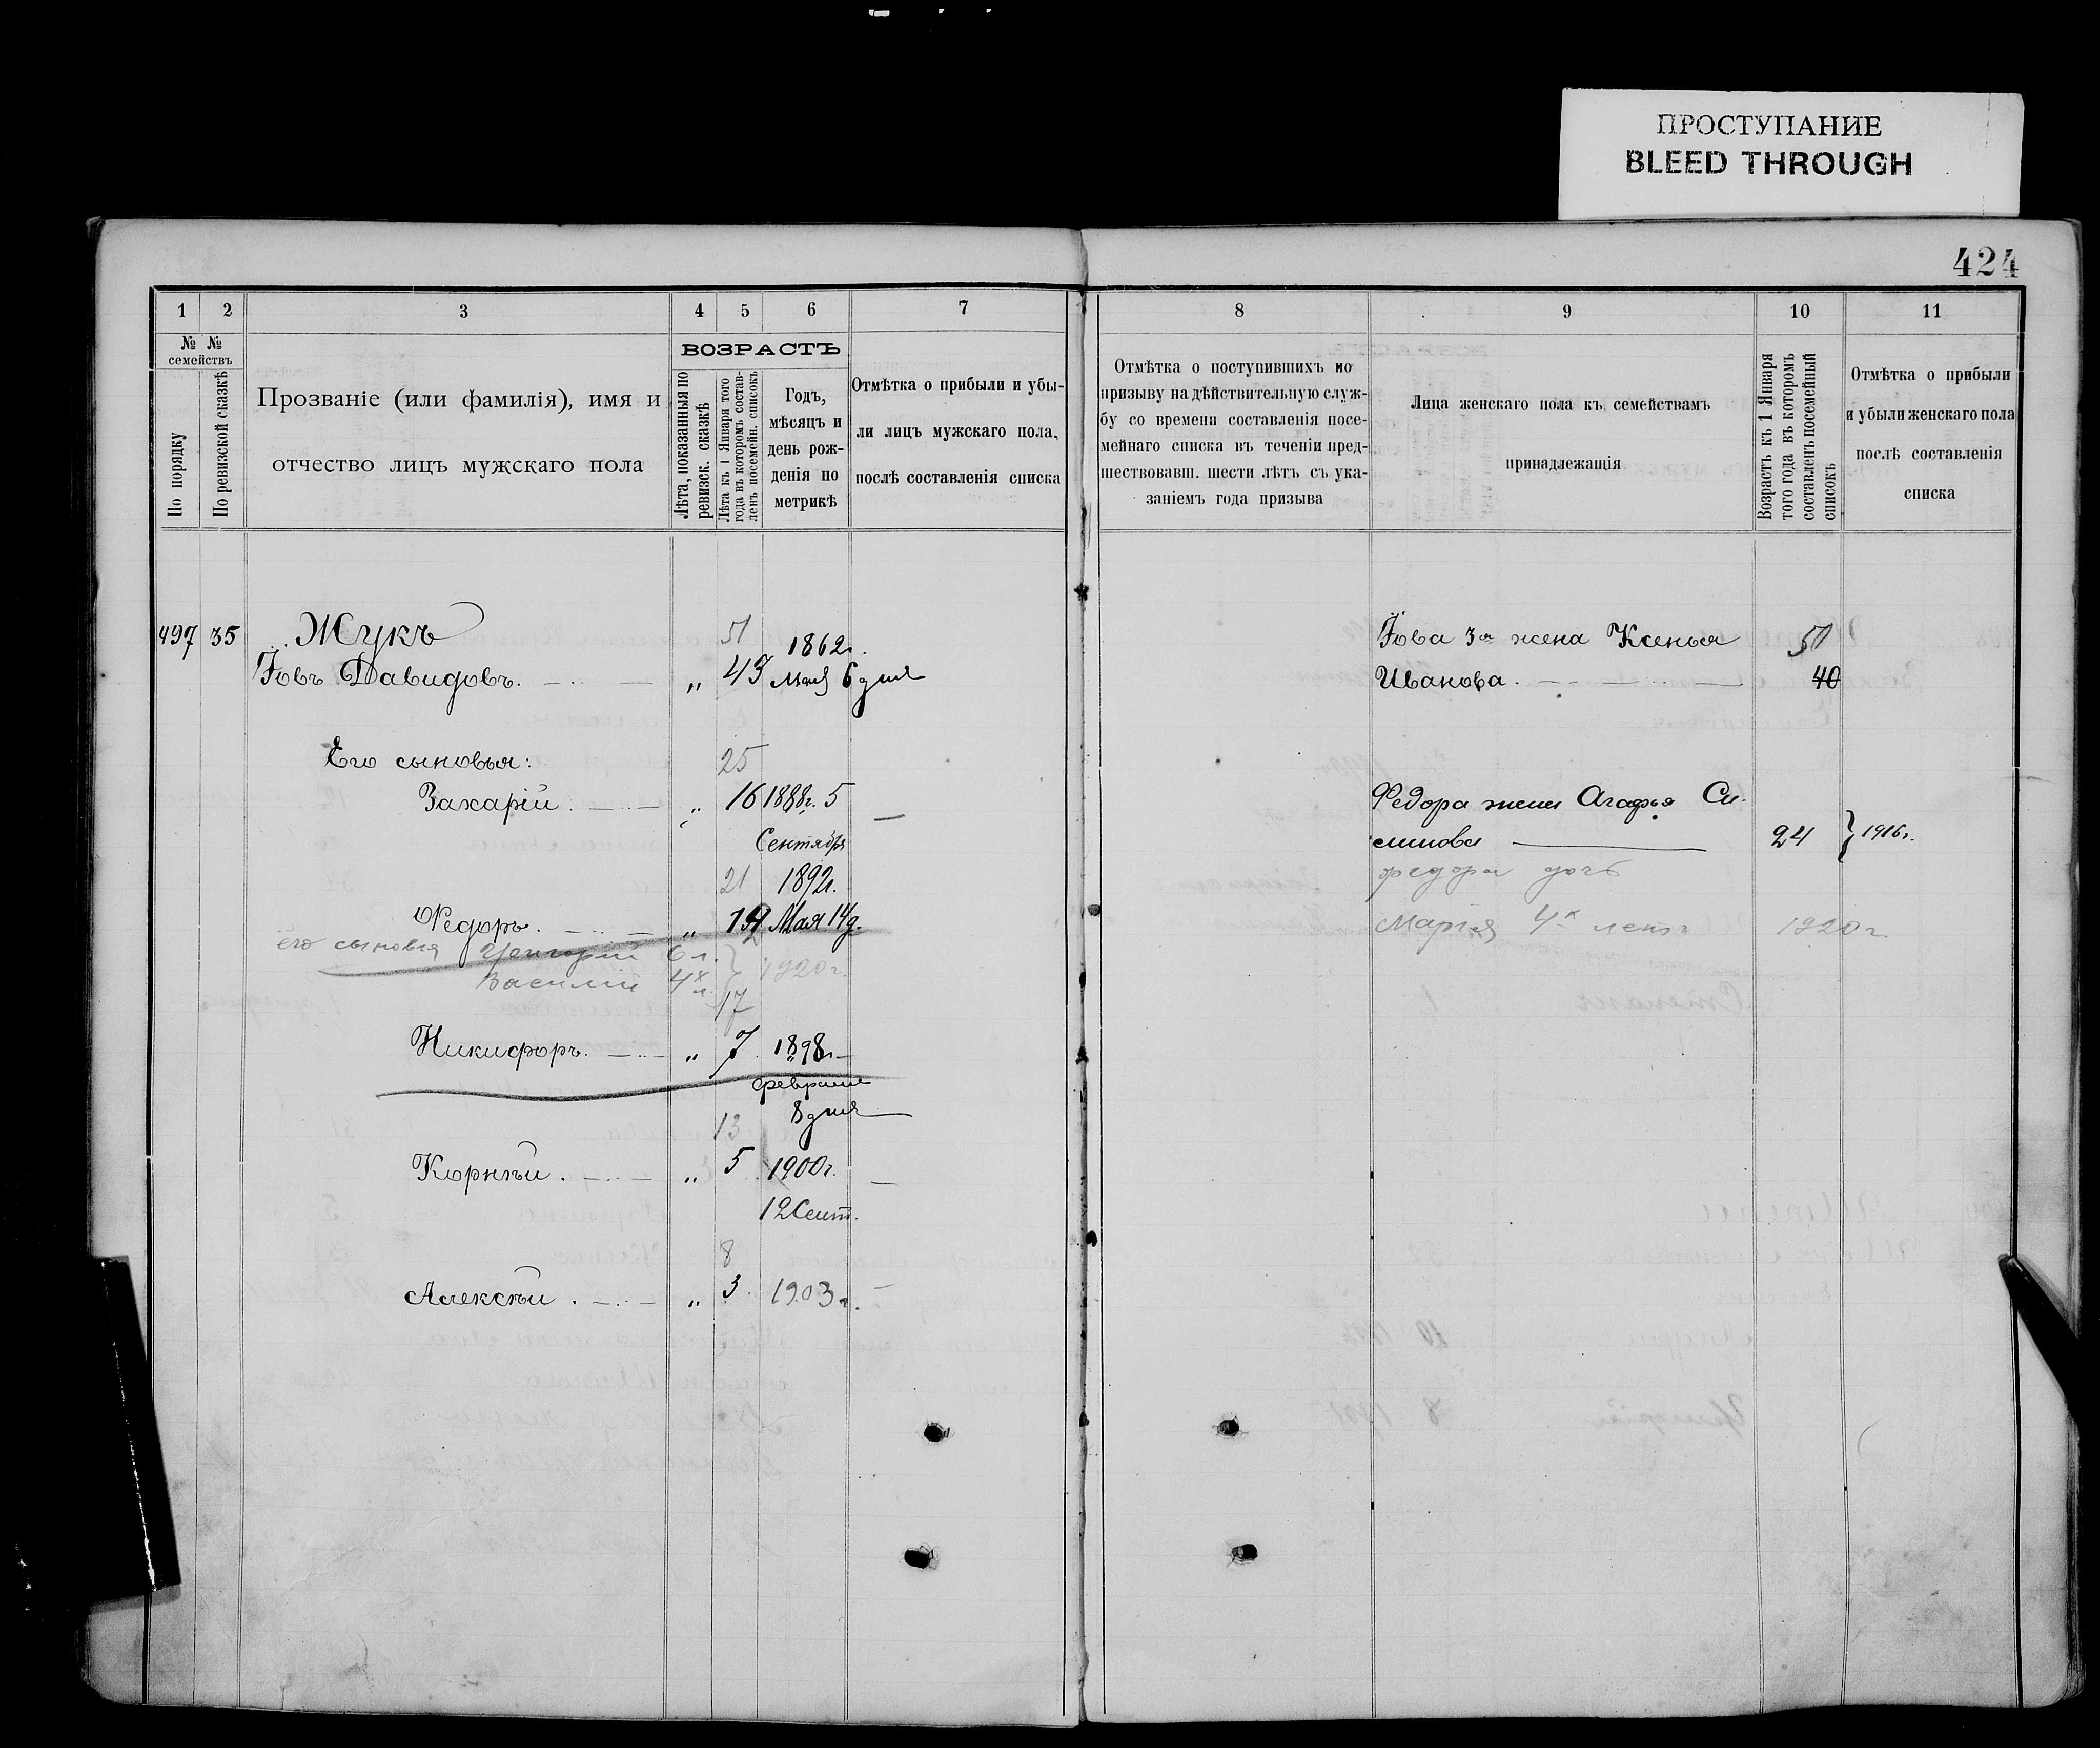 ПРОСТУПАНИЕ
BLEED THROUGH
424
1 2 3 4 5 6 7
№ №
семействъ
По порядку
По ревизской сказкѣ
Прозваніе (или фамилія), имя и
отчество лицъ мужскаго пола
ВОЗРАСТЪ
Лѣта, показанныя по
ревизск. сказкѣ
Лѣта къ 1 Января того
года въ которомъ состав-
ленъ посемейн. списокъ
Годъ,
мѣсяцъ и
день рож-
денія по
метрикѣ
Отмѣтка о прибыли и убы-
ли лицъ мужскаго пола,
послѣ составленія списка
8 9 10 11
Отмѣтка о поступившихъ по
призыву на дѣйствительную служ-
бу со времени составленія посе-
мейнаго списка въ теченіи пред-
шествовавш. шести лѣтъ съ ука-
заніемъ года призыва
Лица женскаго пола къ семействамъ
принадлежащія
Возрастъ къ 1 Января
того года въ которомъ
составленъ посемейный
списокъ
Отмѣтка о прибыли
и убыли женскаго пола
послѣ составленія
списка
497 35 Жукъ 51 1862г.
Іовъ Давидовъ. „ 43 Мая 6 дня
Его сыновья: 25
Захарій. „ 16 1888г. 5
Сентября
21 1892г.
Федоръ. „ 12 Мая 14д.
его сыновья Григорій 6 л. } 1920г.
Василій 4х л.
17
Никифоръ. „ 7 1898г.
февраля
8 дня
13
Корнѣй. „ 5 1900г.
12 Сент.
8
Алексѣй. „ 3 1903г.
Іова 3я жена Ксенья 50
Иванова. 40
Федора жена Агафья Си-
24 } 1916г.
федора дочь
Марія 4х летъ 1920г.